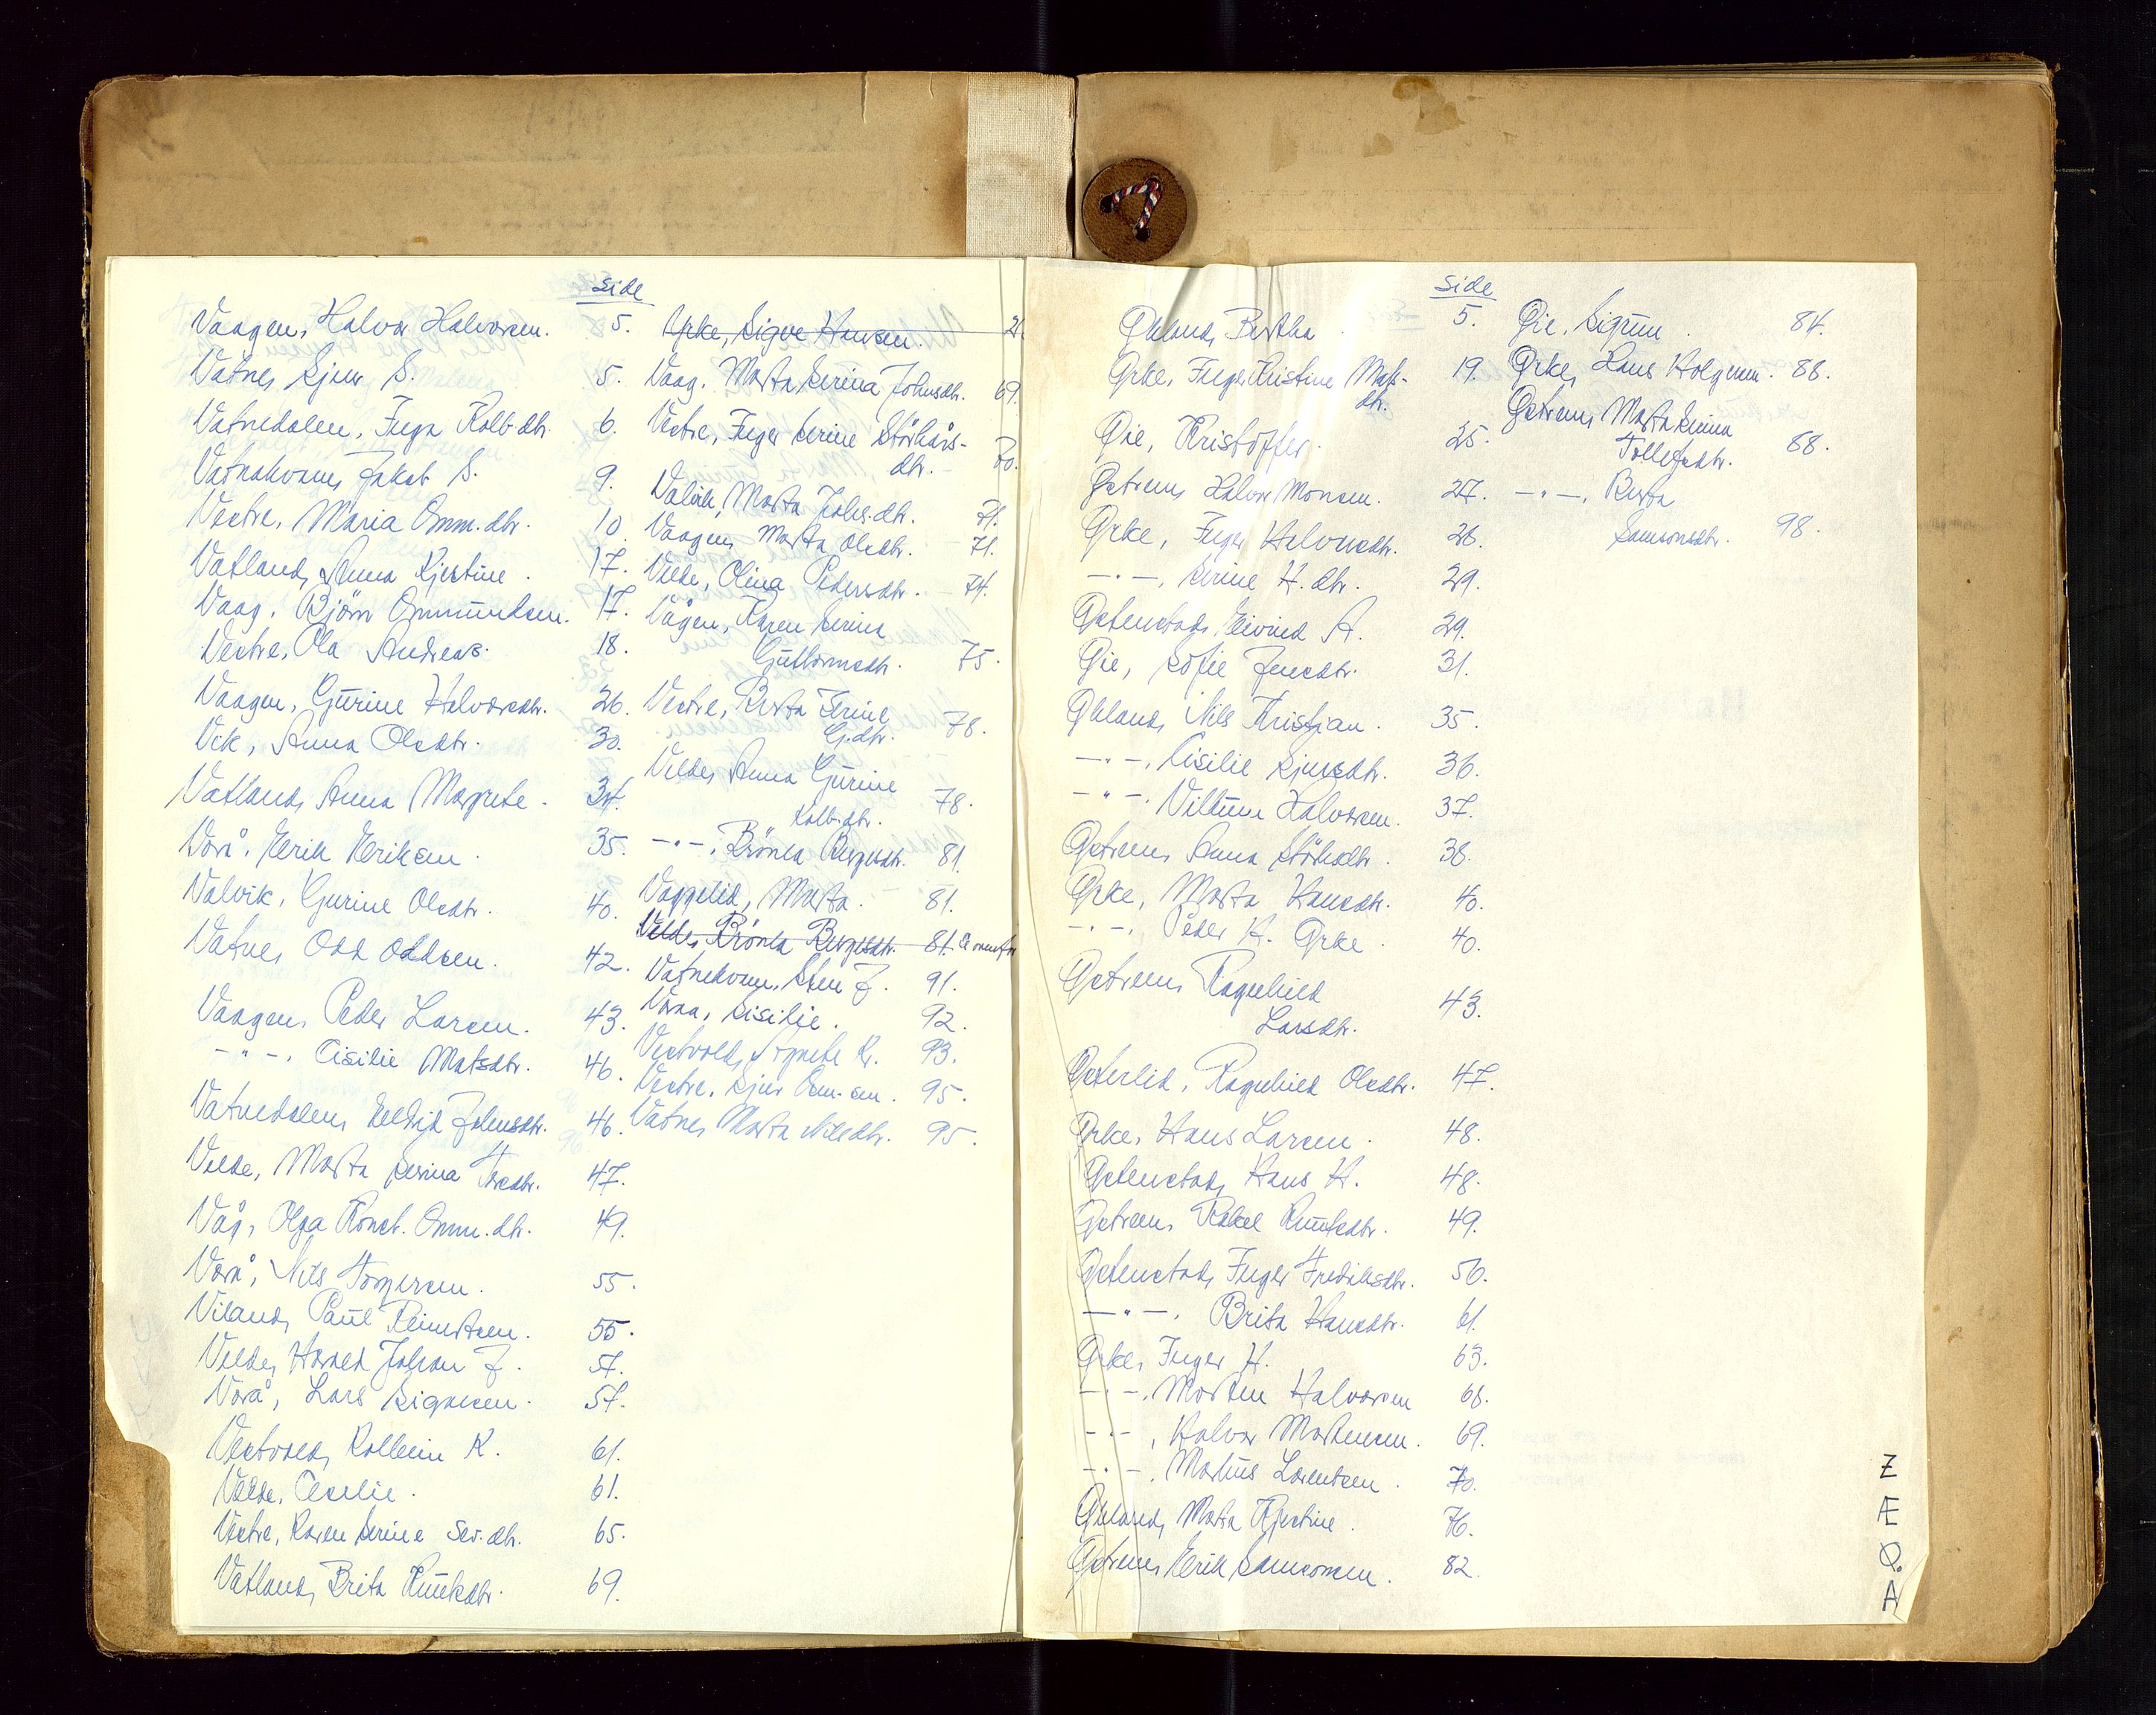 Side
Vaagen, Halvor Halvorsen. 5.
Vatnes Sjur S. 5.
Vatnedalen, Inga Kolb.dtr. 6.
Vatnakvam, Jakob S. 9.
Vestre, Maria Omm.dtr. 10.
Vatland, Anna Kjestine. 17.
Vaag, Bjørn Ommundsen. 17.
Vestre, Ola Andreas. 18.
Vaagen, Gurine Halvorsdtr. 26.
Vik, Anna Olsdtr. 30.
Vatland, Anna Margrete. 34.
Vorå, Erik Eriksen. 35.
Valvik, Gurine Olsdtr. 40.
Vatnes Odd Oddsen. 42.
Vaagen, Peder Larsen. 43.
-"-, Cisilie Matsdtr. 46.
Vatnedalen, Johnsdtr. 46.
Velde, Marta Serina Toresdtr. 47.
Våg, Olga Konst. Omm.dtr. 49.
Vorå, Nils Torgersen. 55.
Viland, Paul Reinertsen. 55.
Velde, Harald Johan J. 57.
Vorå, Lars Sigvesen. 57.
Vestvold, Kolbein K. 61.
Velde, Cecilie. 61.
Vestre, Karen Serine Sev.dtr. 65.
Vatland, Brita Knutsdtr. 69.
Ørke, Sigve Hansen. 2.
Vaag, Marta Serina Johnsdtr. 69.
Vestre, Inger Serine Størkårs-
dtr. 70.
Valvik, Marta Johs.dtr. 71.
Vaagen, Marta Olsdtr. 71.
Velde, Olina Pedersdtr. 74.
Vågen, Karen Serina
Guttormsdtr. 75.
Vestre, Berta Serine
G.dtr. 78.
Velde, Anna Gurine
Kolb.dtr. 78.
-"-, Brönla Bergesdtr. 81.
Vaggelid, Marta. 81.
Velde, Brönla Bergesdtr. 81.
Vatnekvam, Sten J. 91.
Voraa, Sisilie. 92.
Vestvold, Agnete K. 93.
Vestre, Sjur Om.sen. 95.
Vatnes Marta Nilsdtr. 95.
Side
Øhland, Bertha 5.
Ørke, Inger Kristine Mats-
dtr. 19.
Øie, Kristoffer. 25.
Østrem, Halvor Monsen. 27.
Ørke, Inger Halvorsdtr. 28.
-"-, Serine H.dtr. 29.
Østenstad, Eivind A. 29.
Øie, Sofie Jensdtr. 31.
Øhland, Nils Kristian. 35.
-"-, Cisilie Sjursdtr. 36.
-"-, Villum Halvorsen. 37.
Østrem, Anna Størksdtr. 38.
Ørke, Marta Hansdtr. 40.
-"-, Peder H. Ørke. 40.
Østrem, Ragnhild
Larsdtr. 43.
Østerlid, Ragnhild Olsdtr. 47.
Ørke, Hans Larsen. 48.
Østenstad, Hans H. 48.
Østrem, Rakel Knutsdtr. 49.
Østenstad, Inger Fredriksdtr. 56.
-"-, Brita Hansdtr. 61.
Ørke, Inger H. 63.
-"-, Morten Halvorsen 68.
-"-, Halvor Mortensen. 69.
-"-, Martius Lorentsen. 70.
Øhland, Marta Kjestine. 76.
Østrem, Erik Samsonsen. 82.
Øie, Sigrun. 84.
Ørke, Hans Holgersen. 88.
Østrem, Marta Serina
Tollefsdtr. 88.
-"-, Berta
Samsonsdtr. 98.
Z
Æ
Ø.
A